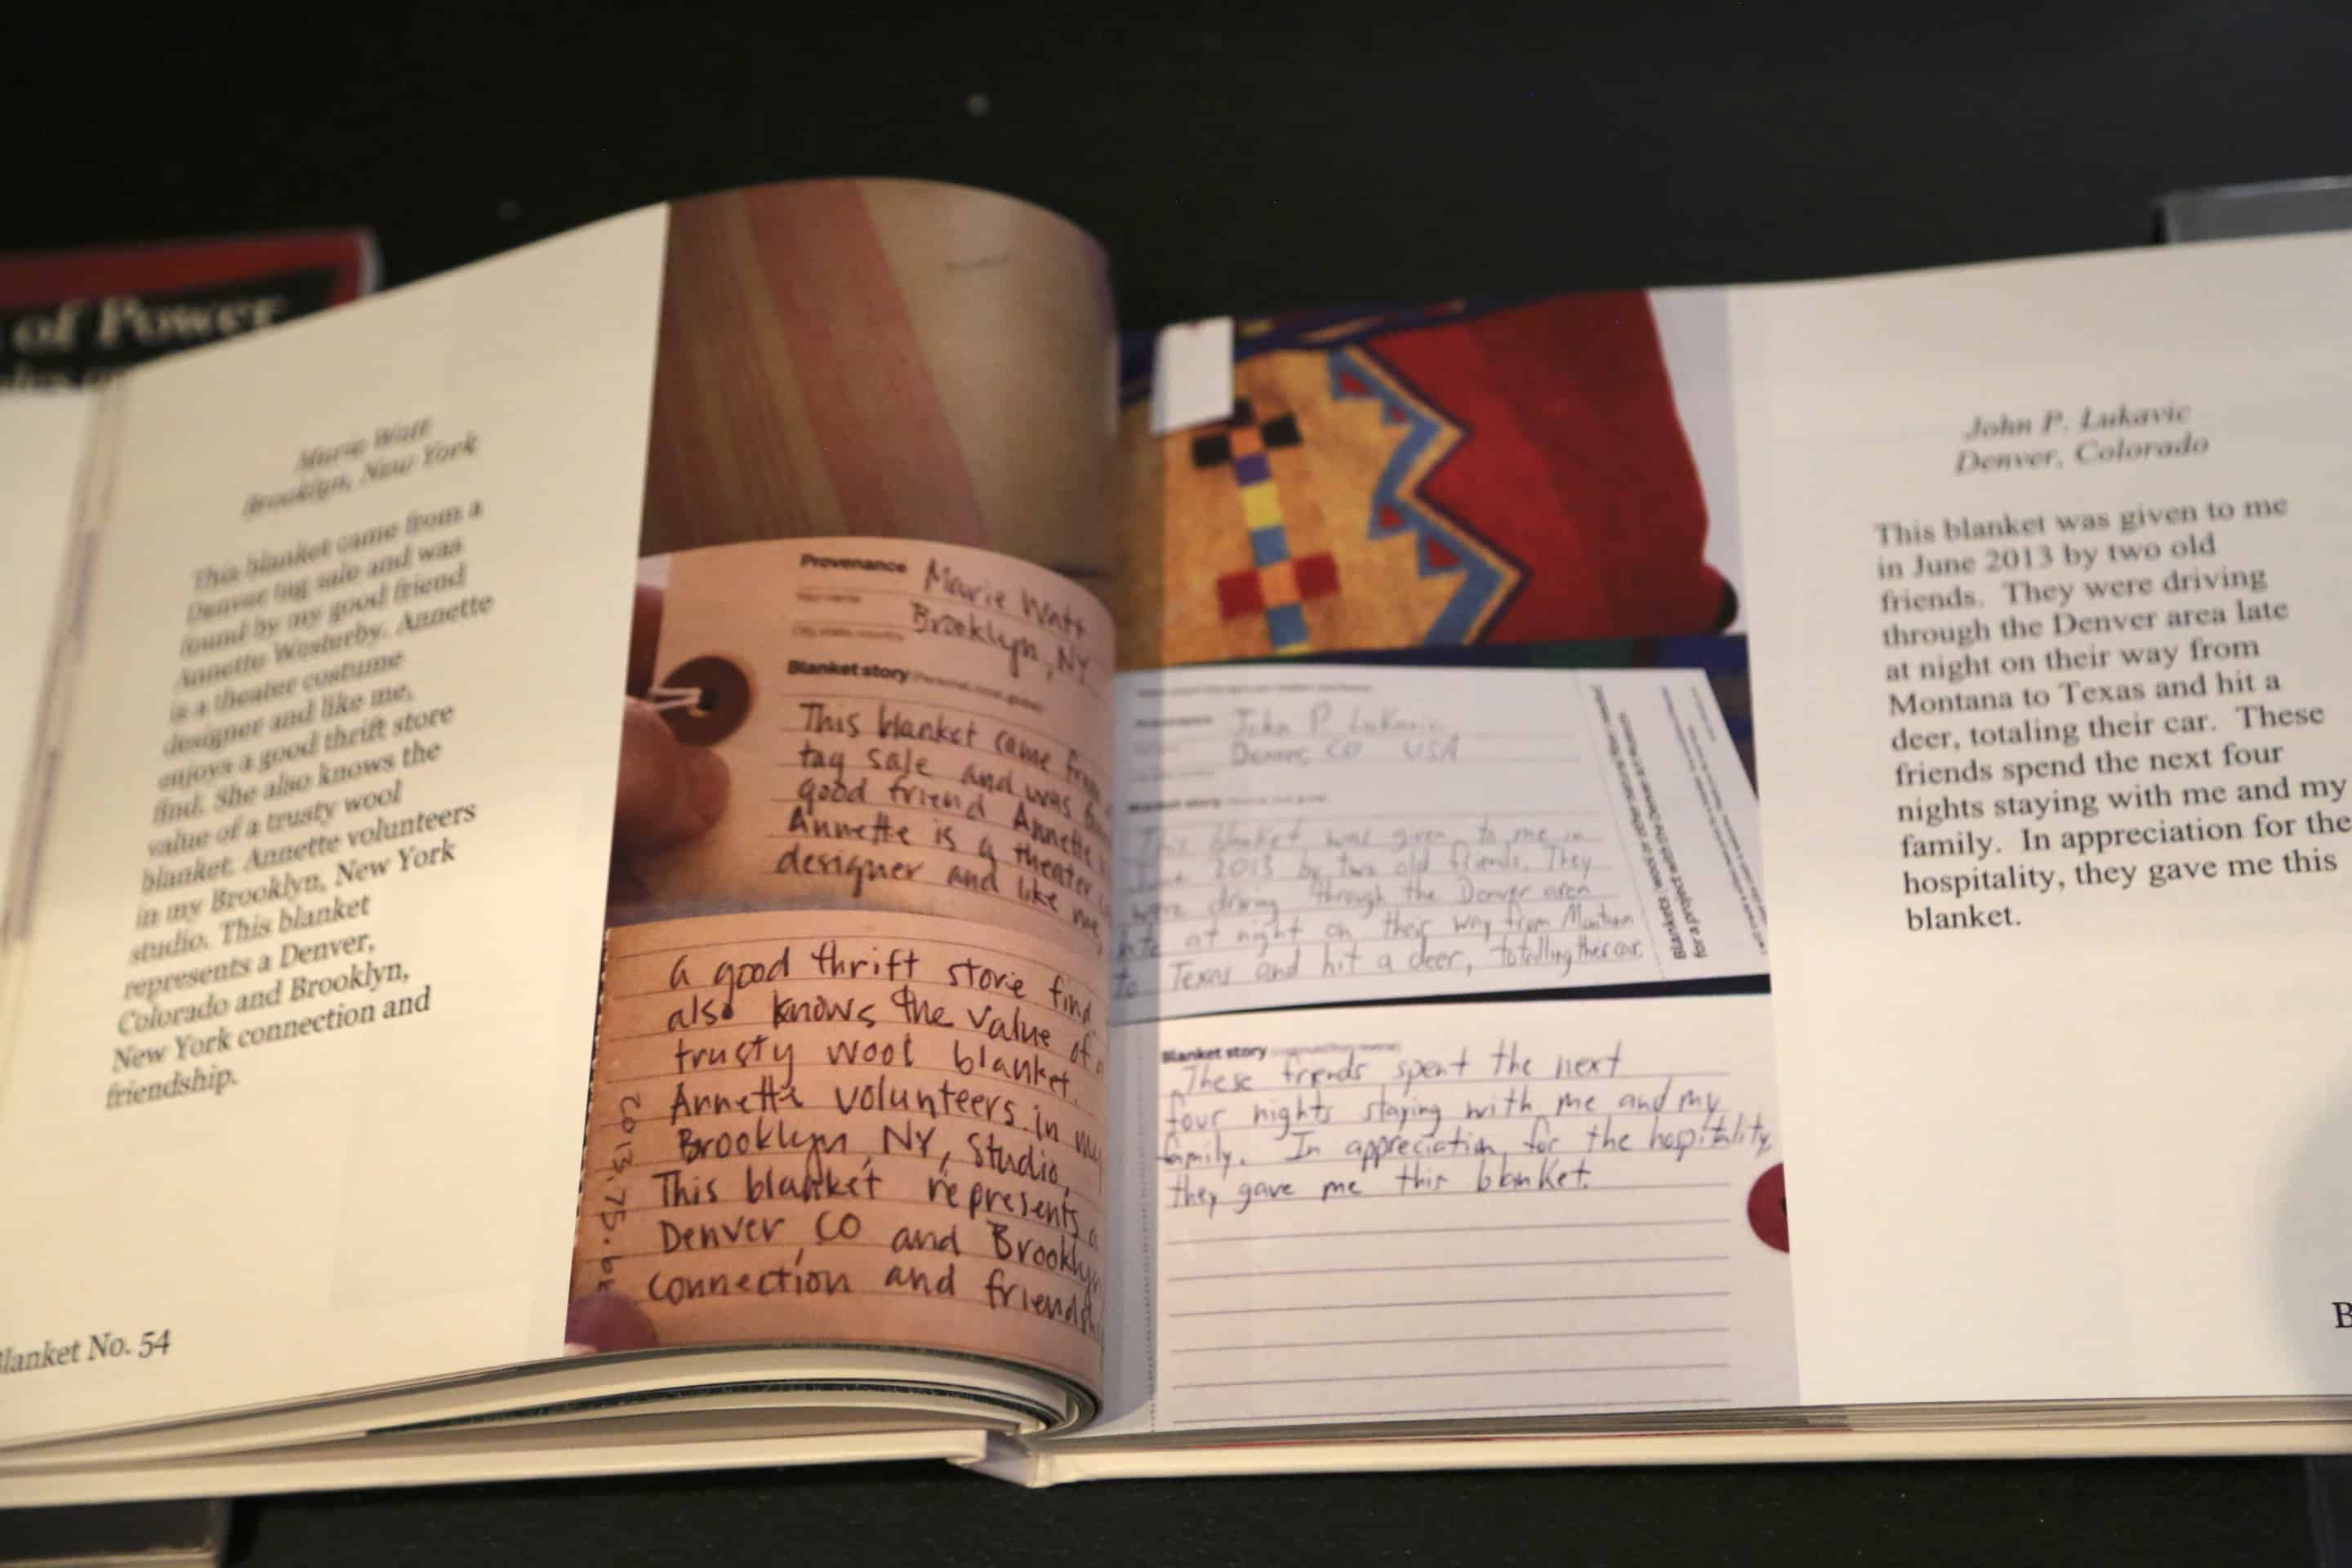 of Power
Marie Watt
Brooklyn, New York
This blanket came from a
Denver tag sale and was
found by my good friend
Annette Westerby. Annette
is a theater costume
designer and like me,
enjoys a good thrift store
find. She also knows the
value of a trusty wool
blanket. Annette volunteers
in my Brooklyn, New York
studio. This blanket
represents a Denver,
Colorado and Brooklyn,
New York connection and
friendship.
Blanket No. 54
Provenance Marie Watt
Your name
Brooklyn, NY
City, state, country
Blanket story
This blanket came from
tag sale and was
good friend Annette
Annette is a theater
designer and like me,
a good thrift store find.
also knows the value of
trusty wool blanket.
Annette volunteers in my
Brooklyn, NY, Studio.
This blanket represents a
Denver, CO and Brooklyn
connection and friendsh
2013.75.
Provenance John P. Lukavic
Denver, CO USA
Blanket story
This blanket was given to me in
June 2013 by two old friends. They
were driving through the Denver area
late at night on their way from Montana
to Texas and hit a deer, totalling their car.
for a project with the Denver Art Museum
Blanket story
These friends spent the next
four nights staying with me and my
family. In appreciation for the hospitality,
they gave me this blanket.
John P. Lukavic
Denver, Colorado
This blanket was given to me
in June 2013 by two old
friends. They were driving
through the Denver area late
at night on their way from
Montana to Texas and hit a
deer, totaling their car. These
friends spend the next four
nights staying with me and my
family. In appreciation for the
hospitality, they gave me this
blanket.
B